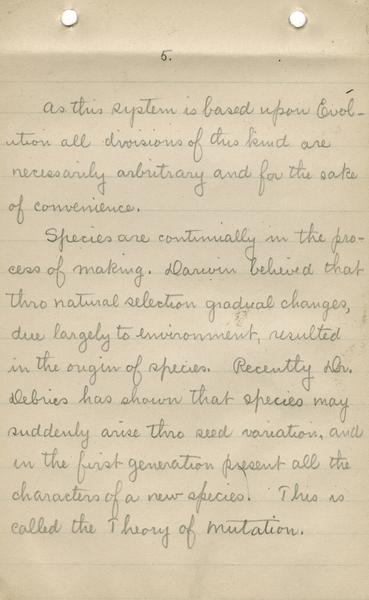 5.
As this system is based upon Evol-
ution all divisions of this kind are
necessarily arbitrary and for the sake
of convenience.
Species are continually in the pro-
cess of making. Darwin believed that
thro natural selection gradual changes,
due largely to environment, resulted
in the origin of species. Recently Dr.
Debries has shown that species may
suddenly arise thro seed variation, and
in the first generation present all the
characters of a new species. This is
called the Theory of Mutation.